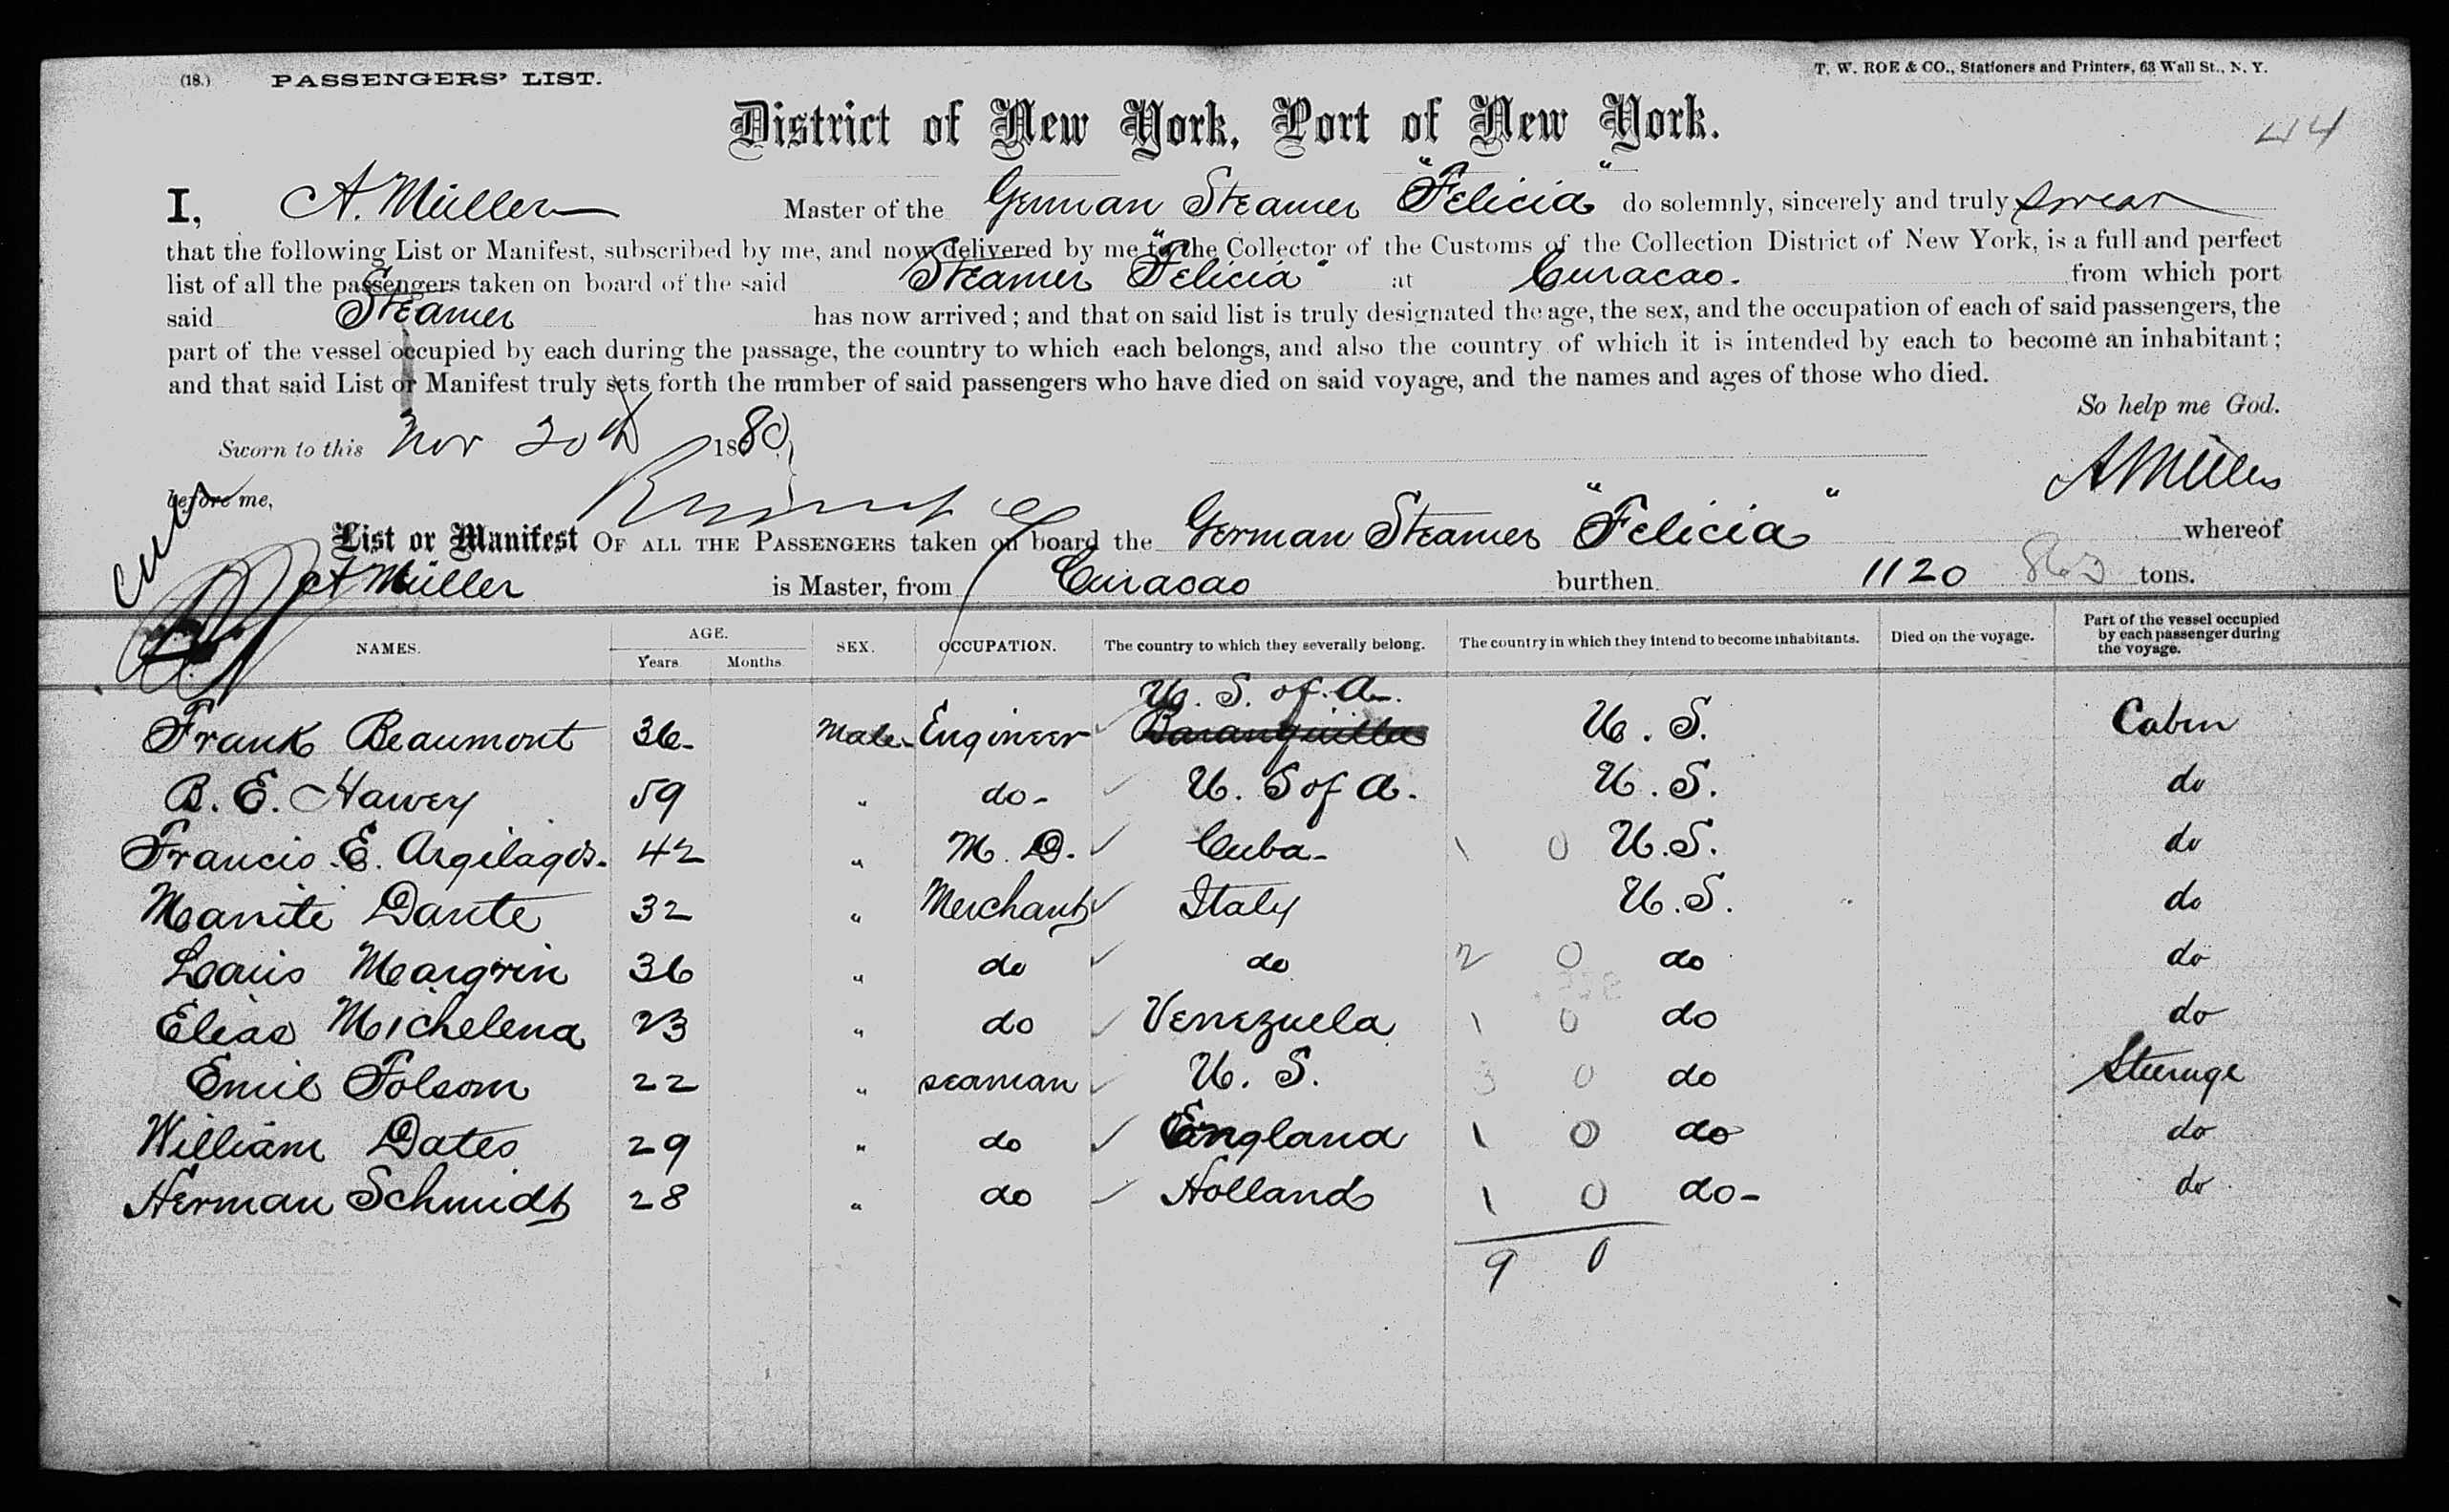 (18.) PASSENGERS' LIST. T. W. ROE & CO., Stationers and Printers, 63 Wall St., N. Y.
District of New York, Port of New York.
44
I, A. Müller Master of the German Steamer "Felicia" do solemnly, sincerely and truly swear
that the following List or Manifest, subscribed by me, and now delivered by me to the Collector of the Customs of the Collection District of New York, is a full and perfect
list of all the passengers taken on board of the said Steamer "Felicia" at Curacao. from which port
said Steamer has now arrived; and that on said list is truly designated the age, the sex, and the occupation of each of said passengers, the
part of the vessel occupied by each during the passage, the country to which each belongs, and also the country of which it is intended by each to become an inhabitant;
and that said List or Manifest truly sets forth the number of said passengers who have died on said voyage, and the names and ages of those who died.
So help me God.
Sworn to this Nov 20th 1880
A Müller
before me,
List or Manifest OF ALL THE PASSENGERS taken on board the German Steamer "Felicia" whereof
A Müller is Master, from Curacao burthen 1120 863 tons.
NAMES. AGE. Years. Months. SEX. OCCUPATION. The country to which they severally belong. The country in which they intend to become inhabitants. Died on the voyage. Part of the vessel occupied by each passenger during the voyage.
U. S. of A.
Frank Beaumont 36 Male Engineer Baranquilla U. S. Cabin
B. E. Hawey 59 " do U. S of A. U. S. do
Francis E. Argilagos. 42 " M. D. Cuba 1 0 U. S. do
Manité Dante 32 " Merchant Italy U. S. do
Louis Margrin 36 " do do 2 0 do do
Elias Michelena 23 " do Venezuela 1 0 do do
Emil Folsom 22 " seaman U. S. 3 0 do Steerage
William Dates 29 " do England 1 0 do do
Herman Schmidt 28 " do Holland 1 0 do do
9 0